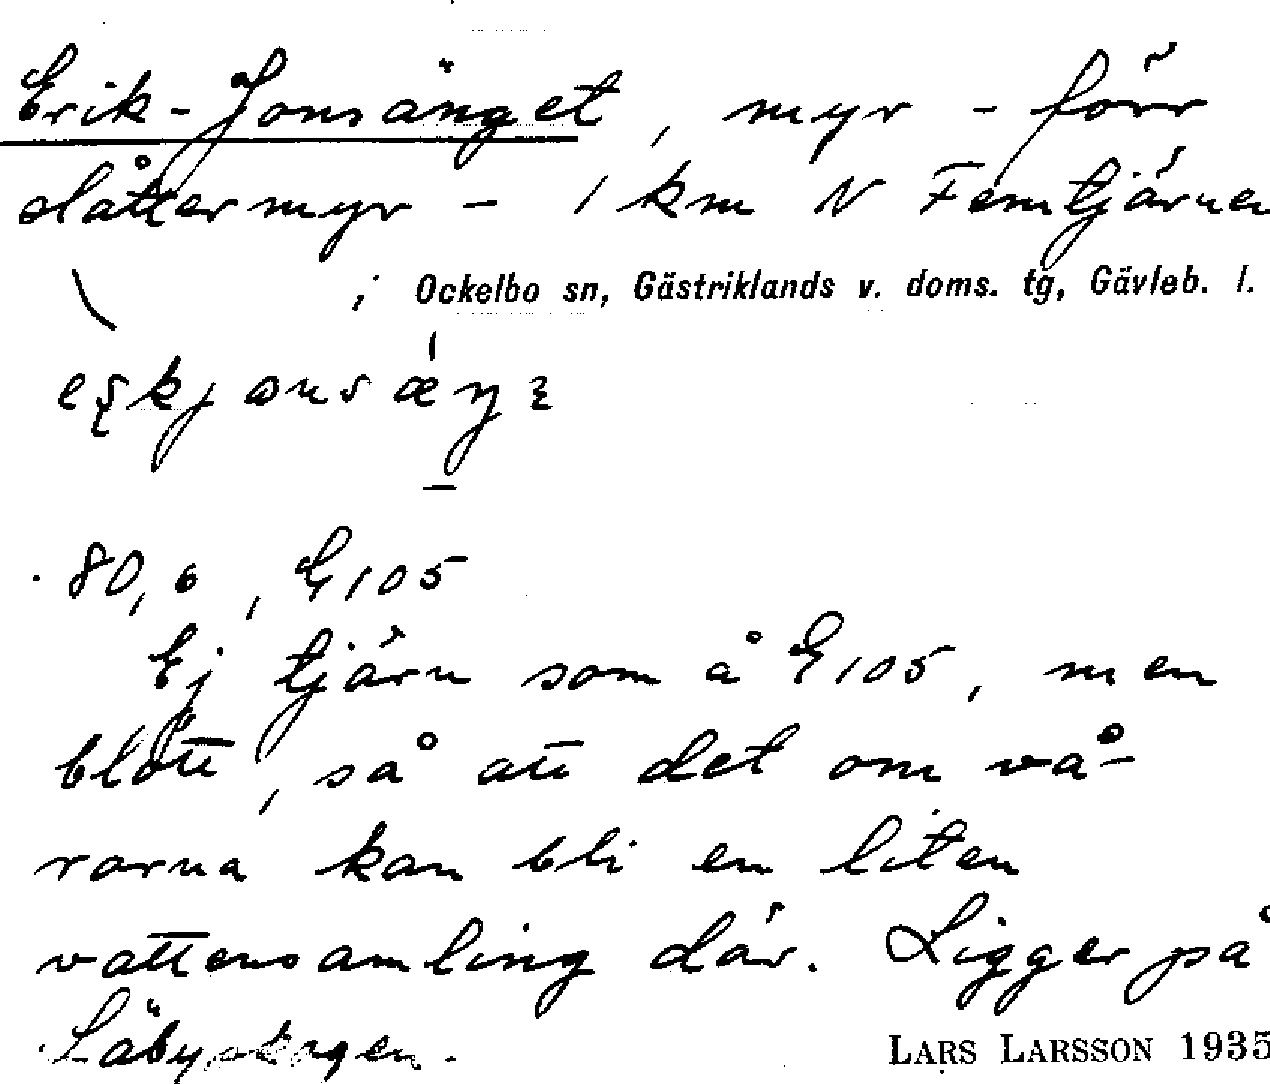 Erik-Jonsänget, myr - förr
slåttermyr - 1 km N Femtjärnen
; Ockelbo sn, Gästriklands v. doms. tg, Gävleb. l.
80,6, E105
Ej tjärn som å E105, men
blött, så att det om vå-
rarna kan bli en liten
vattensamling där. Ligger på
Säbyskogen.
LARS LARSSON 1935